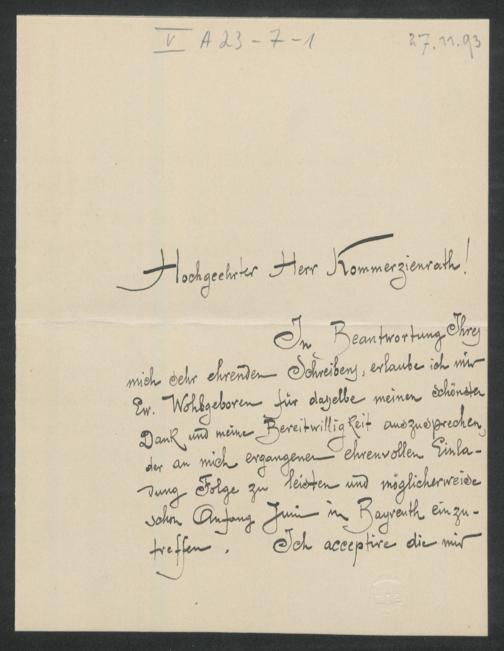 V A 23-7-1
27.11.93
Hochgeehrter Herr Kommerzienrath!
In Beantwortung Ihres
mich sehr ehrenden Schreibens, erlaube ich mir
Ew. Wohlgeboren für dasselbe meinen schönsten
Dank und meine Bereitwilligkeit auszusprechen,
der an mich ergangenen ehrenvollen Einla-
dung Folge zu leisten und möglicherweise
schon Anfang Juni in Bayreuth einzu-
treffen. Ich acceptire die mir